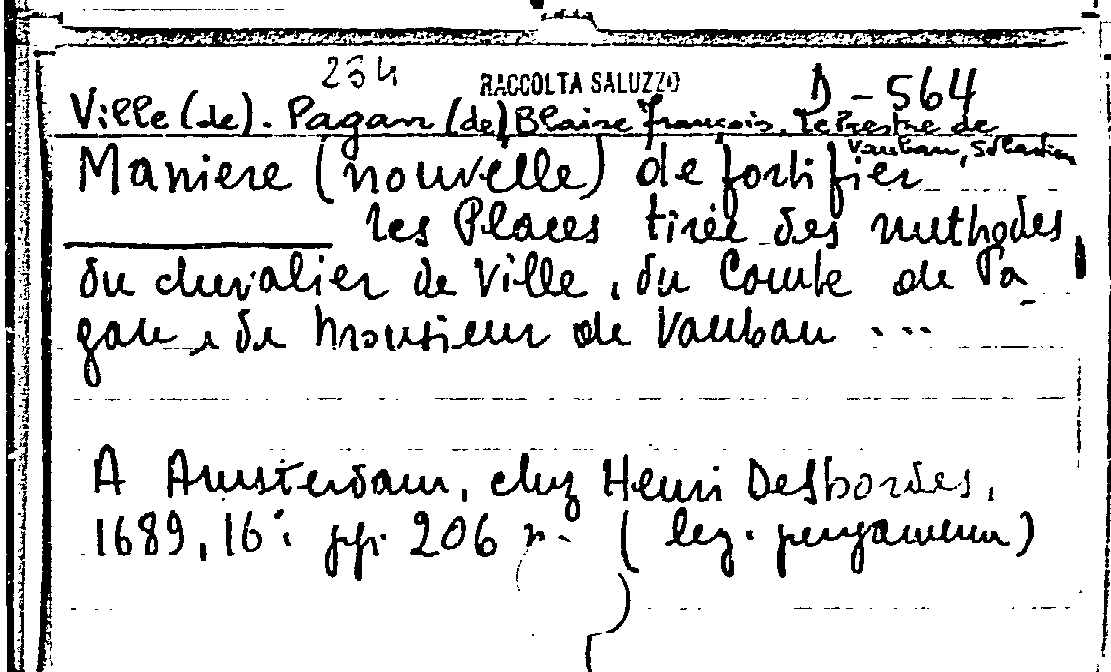 234 RACCOLTA SALUZZO D - 564
Ville (de). Pagan (de) Blaise François, Le Prestre de
Vauban, Sébastien
Maniere (nouvelle) de fortifier
les Places tirée des methodes
du chevalier de Ville, du Comte de Pa
gan, & de Monsieur de Vauban ...
A Amsterdam, chez Henri Desbordes,
1689, 16° pp. 206 n. (leg. pergamena)